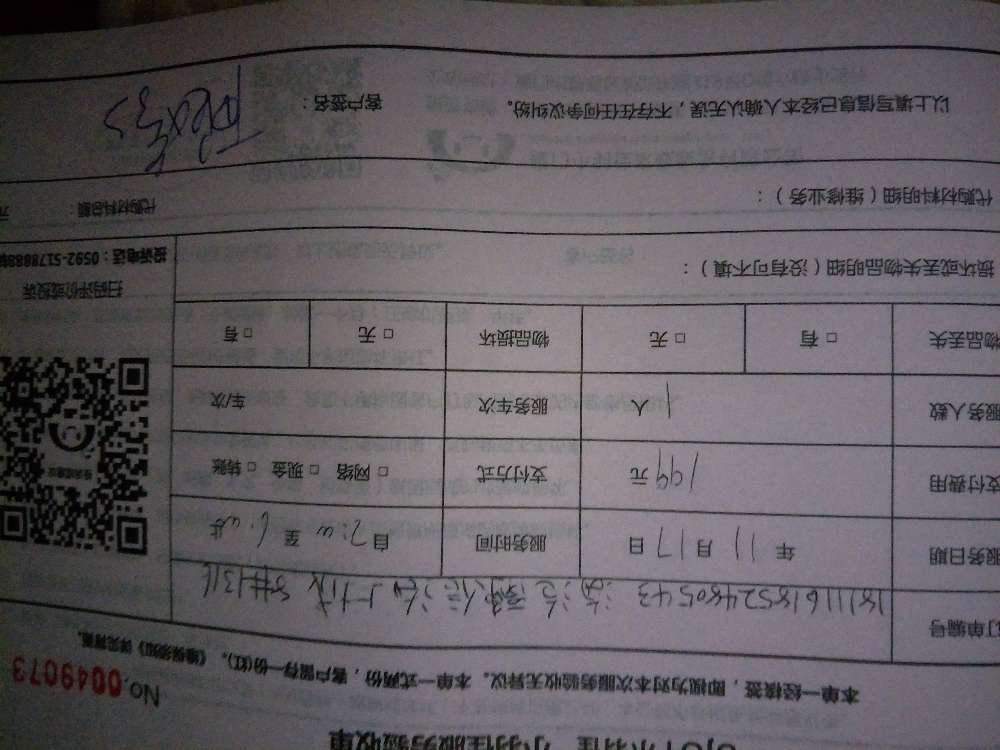 小羽佳服务验收单
No. 0049073
本单一经核签，即视为对本次服务验收无异议。本单一式两份，客户留存一份(红)。《维保须知》详见背面。
订单编号 1811161852480543
服务日期 年 11 月 17 日 服务时间 自 2:00 至 6:00 止
支付费用 199 元 支付方式 □ 网络 □ 现金 □ 转账
服务人数 1 人 服务车次 车/次
物品丢失 □ 有 □ 无 物品损坏 □ 无 □ 有
扫码评价或投诉
投诉电话：0592-5178688转
损坏或丢失物品明细（没有可不填）：
代购材料明细（维修业务）： 代购材料总额： 元
以上填写信息已经本人确认无误，不存在任何争议纠纷。 客户签名：